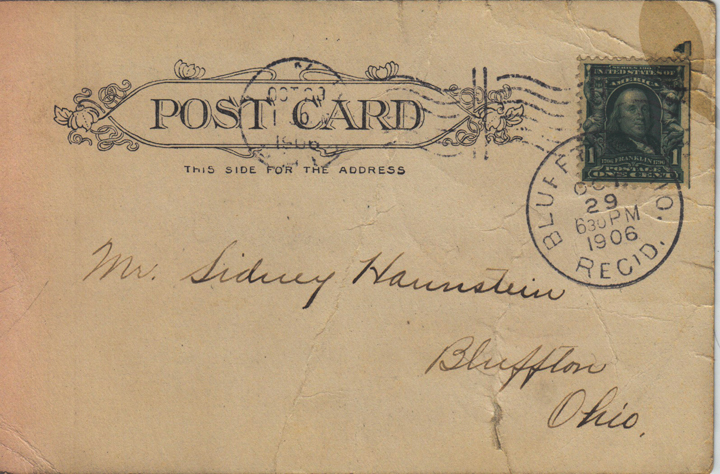 POST CARD
THIS SIDE FOR THE ADDRESS
OCT
1906
SERIES 1902
UNITED STATES OF
AMERICA
1 FRANKLIN 1
POSTAGE
ONE CENT
BLUFF O.
OCT
29
630PM
1906
REC'D.
Mr. Sidney Haunstein
Bluffton
Ohio.